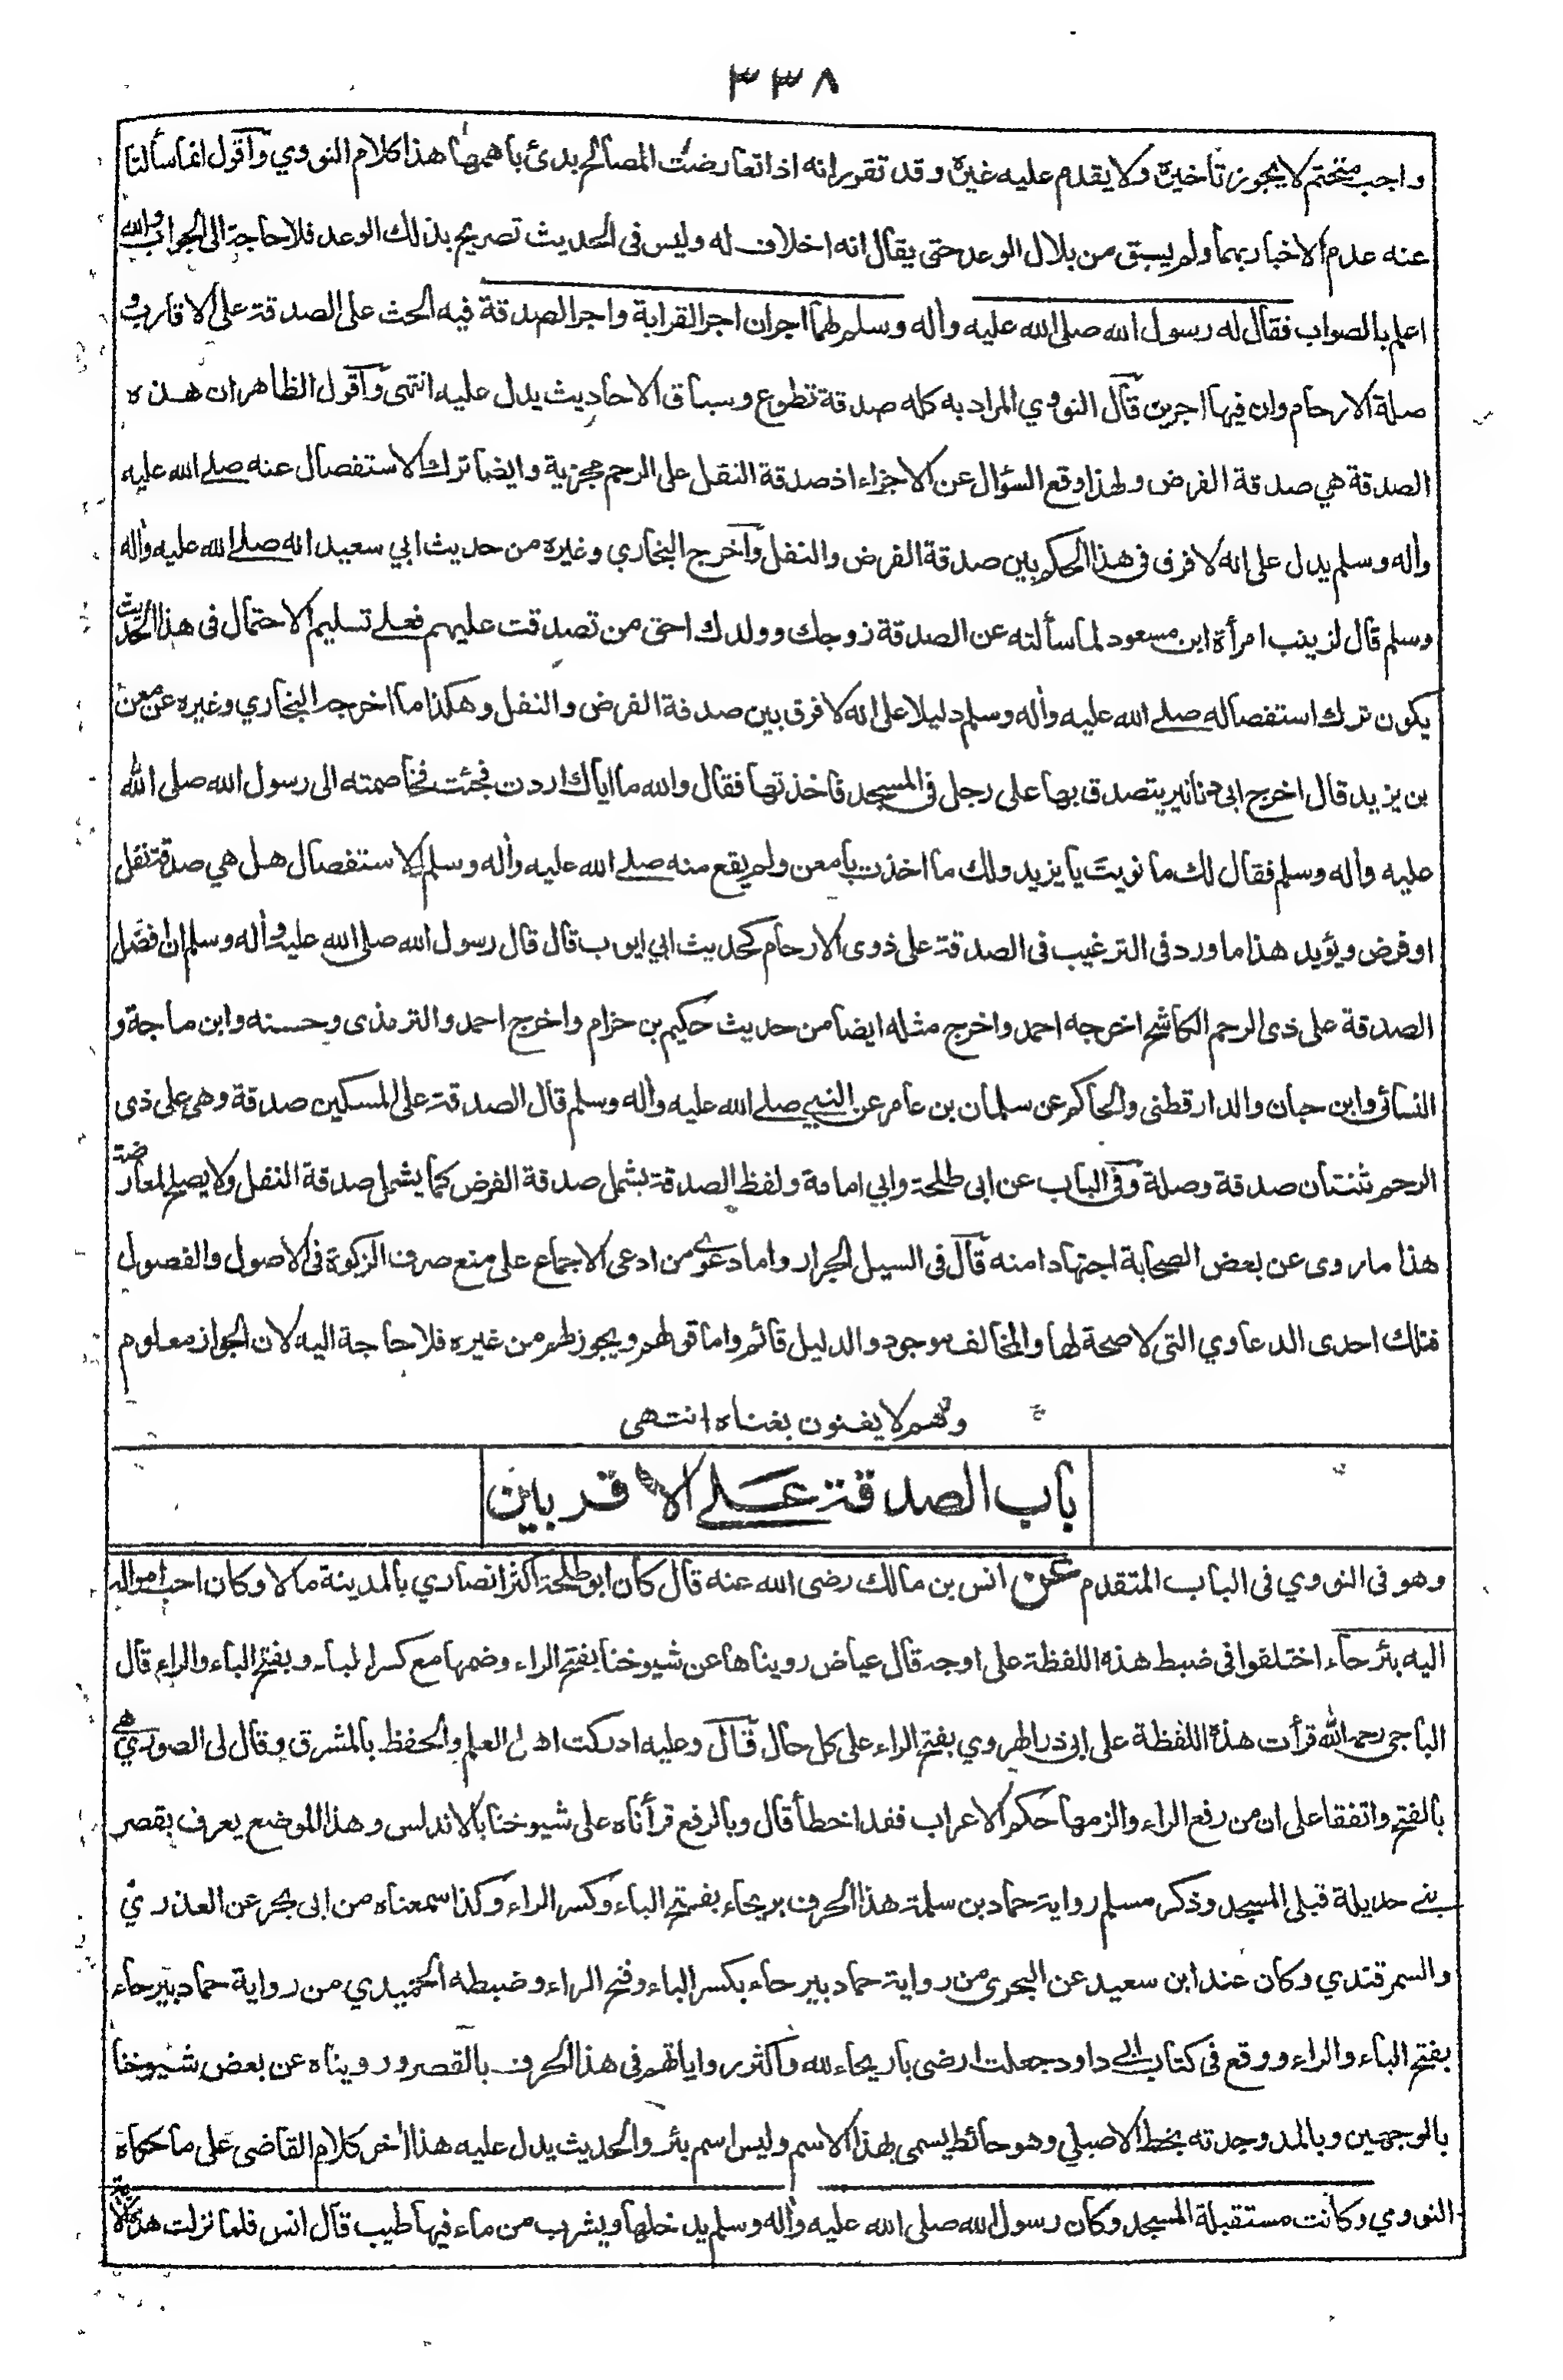 ٣٣٨
واجب متحتم لا يجوز تأخيره ولا يقدم عليه غيره وقد تقرر انه اذا تعارضت المصالح بدئ باهمها هذا كلام النووي وأقول انما سألتا
عنه عدم الاخبار بهما ولم يسبق من بلال الوعد حتى يقال انه اخلاف له وليس فى الحديث تصريح بذلك الوعد فلا حاجة الى الجواب والله
اعلم بالصواب فقال له رسول الله صلى الله عليه وأله وسلم لهما اجران اجر القرابة واجر الصدقة فيه الحث على الصدقة على الاقارب و
صلة الارحام وان فيها اجرين قال النووي المراد به كله صدقة تطوع وسياق الاحاديث يدل عليه انتهى وأقول الظاهر ان هذه
الصدقة هي صدقة الفرض ولهذا وقع السؤال عن الاجزاء اذ صدقة النفل على الرحم مجزية وايضا ترك الاستفصال عنه صلے الله عليه
وأله وسلم يدل على انه لا فرق فى هذا الحكم بين صدقة الفرض والنفل وأخرج البخاري وغيره من حديث ابي سعيد انه صلے الله عليه وأله
وسلم قال لزينب امرأة ابن مسعود لما سألته عن الصدقة زوجك وولدك احق من تصدقت عليهم فعلے تسليم الاحتمال فى هذا الحديث
يكون ترك استفصاله صلے الله عليه وأله وسلم دليلا على انه لا فرق بين صدقة الفرض والنفل وهكذا ما اخرجه البخاري وغيره عن معن
بن يزيد قال اخرج ابى دنانير يتصدق بها على رجل فى المسجد فاخذتها فقال والله ما اياك اردت فجئت فخاصمته الى رسول الله صلى الله
عليه وأله وسلم فقال لك ما نويت يا يزيد ولك ما اخذت يا معن ولم يقع منه صلے الله عليه وأله وسلم الاستفصال هل هي صدقة نفل
او فرض ويؤيد هذا ما ورد فى الترغيب فى الصدقة على ذوى الارحام كحديث ابي ايوب قال قال رسول الله صلى الله عليه وأله وسلم ان افضل
الصدقة على ذى الرحم الكاشح اخرجه احمد واخرج مثله ايضا من حديث حكيم بن حزام واخرج احمد والترمذى وحسنه وابن ماجة و
النسائى وابن حبان والدارقطنى والحاكم عن سلمان بن عامر عن النبي صلے الله عليه وأله وسلم قال الصدقة على المسكين صدقة وهى على ذى
الرحم ثنتان صدقة وصلة وفى الباب عن ابى طلحة وابي امامة ولفظ الصدقة يشمل صدقة الفرض كما يشمل صدقة النفل ولا يصلح لمعارضة
هذا ما روى عن بعض الصحابة اجتهادا منه قال فى السيل الجرار واما دعوے من ادعى الاجماع على منع صرف الزكوة فى الاصول والفصول
فتلك احدى الدعاوي التى لا صحة لها والمخالف موجود والدليل قائم واما قولهم ويجوز لهم من غيره فلا حاجة اليه لان الجواز معلوم
وهم لا يغنون بغناه انتهى
باب الصدقة علے الاقربين
وهو فى النووي فى الباب المتقدم عن انس بن مالك رضى الله عنه قال كان ابو طلحة اكثر انصاري بالمدينة مالا وكان احب امواله
اليه بئر حاء اختلفوا فى ضبط هذه اللفظة على اوجه قال عياض رويناها عن شيوخنا بفتح الراء وضمها مع كسر الباء وبفتح الباء والراء قال
الباجى رحمه الله قرأت هذه اللفظة على ابى ذر الهروي بفتح الراء على كل حال قال وعليه ادركت اهل العلم والحفظ بالمشرق وقال لى الصوري هى
بالفتح واتفقا على ان من رفع الراء والزمها حكم الاعراب فقد اخطأ قال وبالرفع قرأناه على شيوخنا بالاندلس وهذا الموضع يعرف بقصر
بنے حديلة قبلى المسجد وذكر مسلم رواية حماد بن سلمة هذا الحرف بريحاء بفتح الباء وكسر الراء وكذا سمعناه من ابى بحر عن العذري
والسمرقندي وكان عند ابن سعيد عن البحرى من رواية حماد بيرحاء بكسر الباء وفتح الراء وضبطه الحميدي من رواية حماد بيرحاء
بفتح الباء والراء ووقع فى كتاب ابى داود جعلت ارضى باريحاء لله وأكثر رواياتهم فى هذا الحرف بالقصر ورويناه عن بعض شيوخنا
بالوجهين وبالمد وجدته بخط الاصيلي وهو حائط يسمى بهذا الاسم وليس اسم بئر والحديث يدل عليه هذا أخر كلام القاضى على ما حكاه
النووي وكانت مستقبلة المسجد وكان رسول الله صلى الله عليه وأله وسلم يدخلها ويشرب من ماء فيها طيب قال انس فلما نزلت هذه الآية